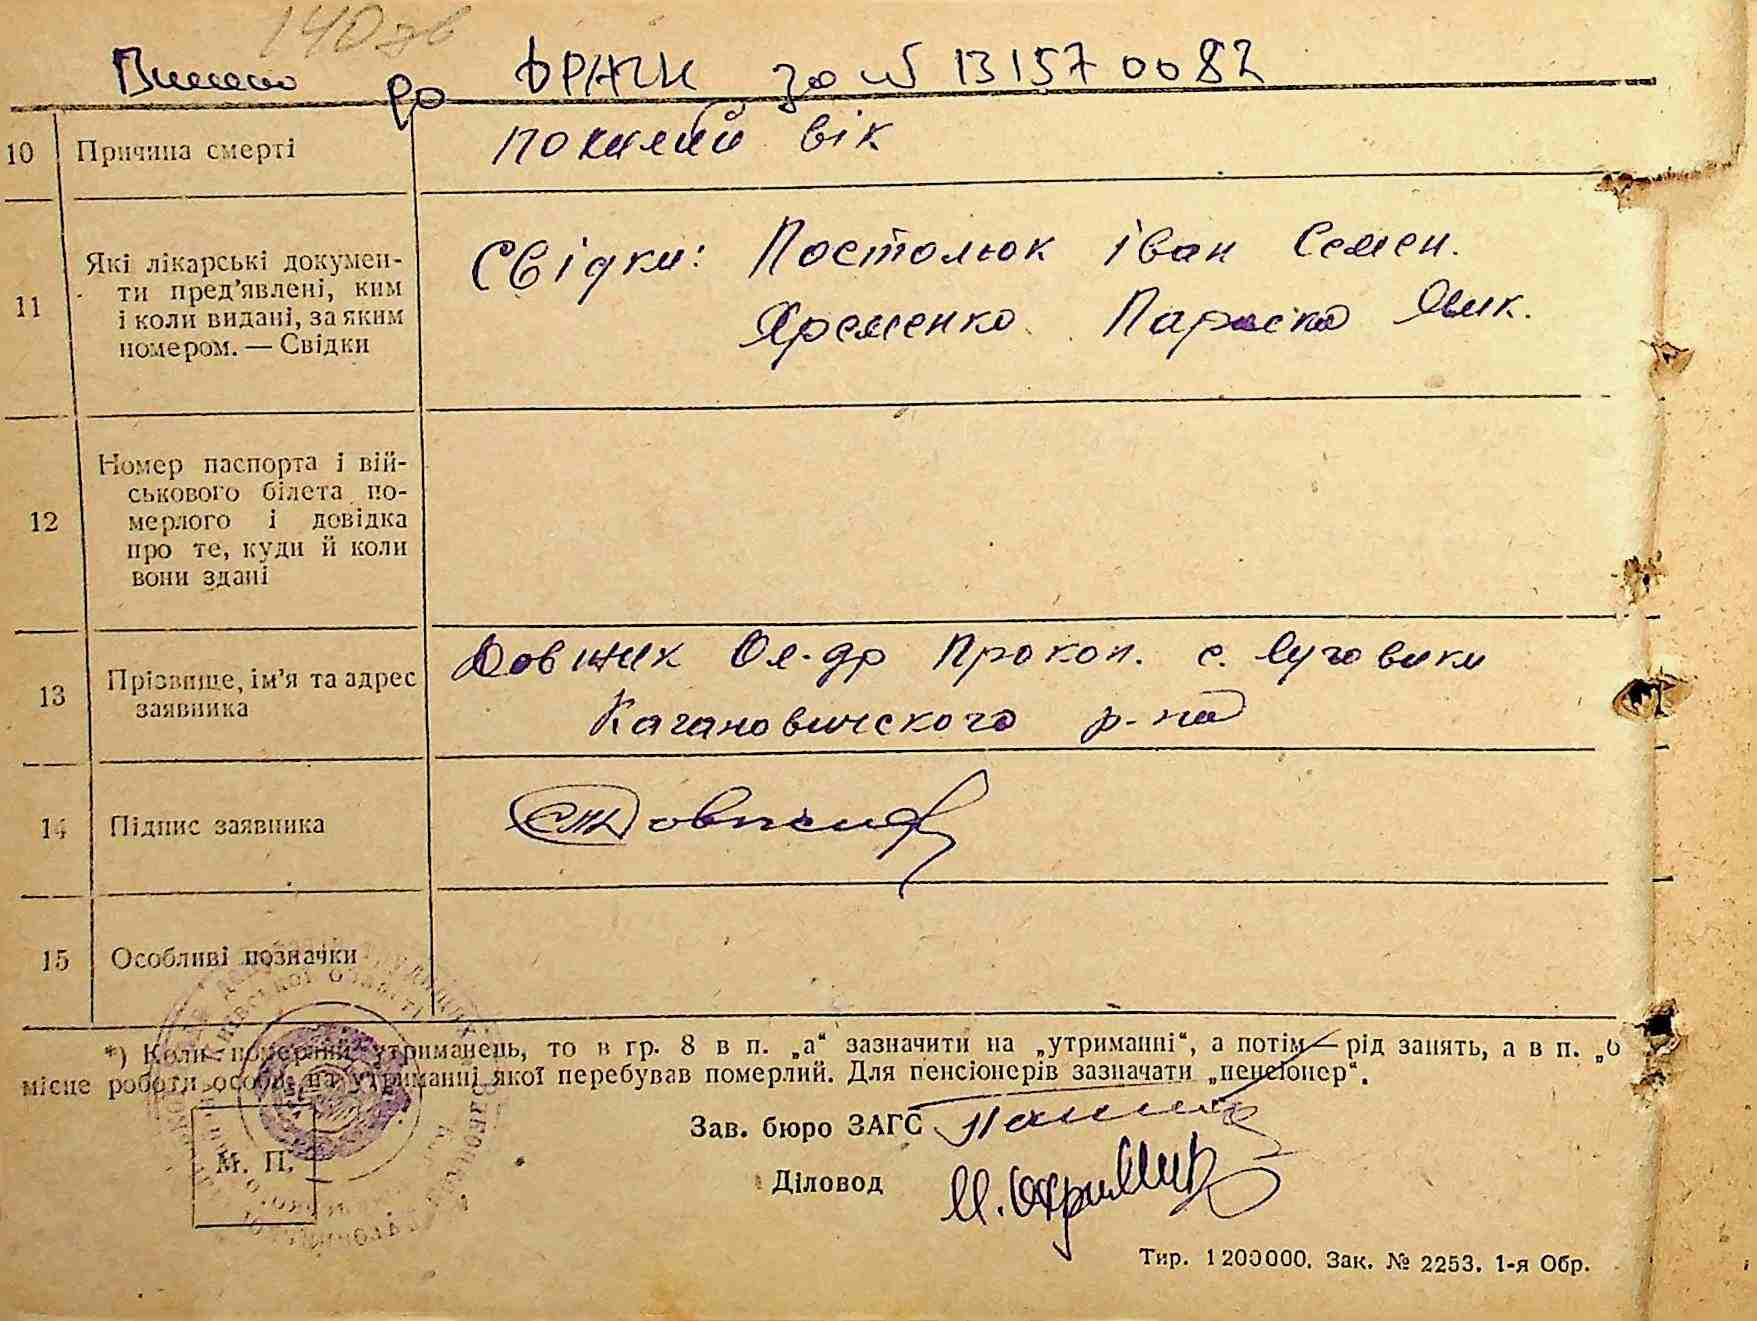 140 зв
Внесено до ДРАЦС за № 131570082
10 Причина смерті
похилий вік
11 Які лікарські докумен-
ти пред'явлені, ким
і коли видані, за яким
номером. — Свідки
Свідки: Постолюк іван Семен.
Яременко Параска Як.
12 Номер паспорта і вій-
ськового білета по-
мерлого і довідка
про те, куди й коли
вони здані
13 Прізвище, ім'я та адрес
заявника
Довжик Ол-др Прокоп. с. Луговики
Кагановичского р-на
14 Підпис заявника
15 Особливі позначки
*) Коли померлий утриманець, то в гр. 8 в п. „а“ зазначити на „утриманні“, а потім — рід занять, а в п. „б
місце роботи особи, на утриманні якої перебував померлий. Для пенсіонерів зазначати „пенсіонер“.
Зав. бюро ЗАГС
М. П.
Діловод
Тир. 1200000. Зак. № 2253. 1-я Обр.